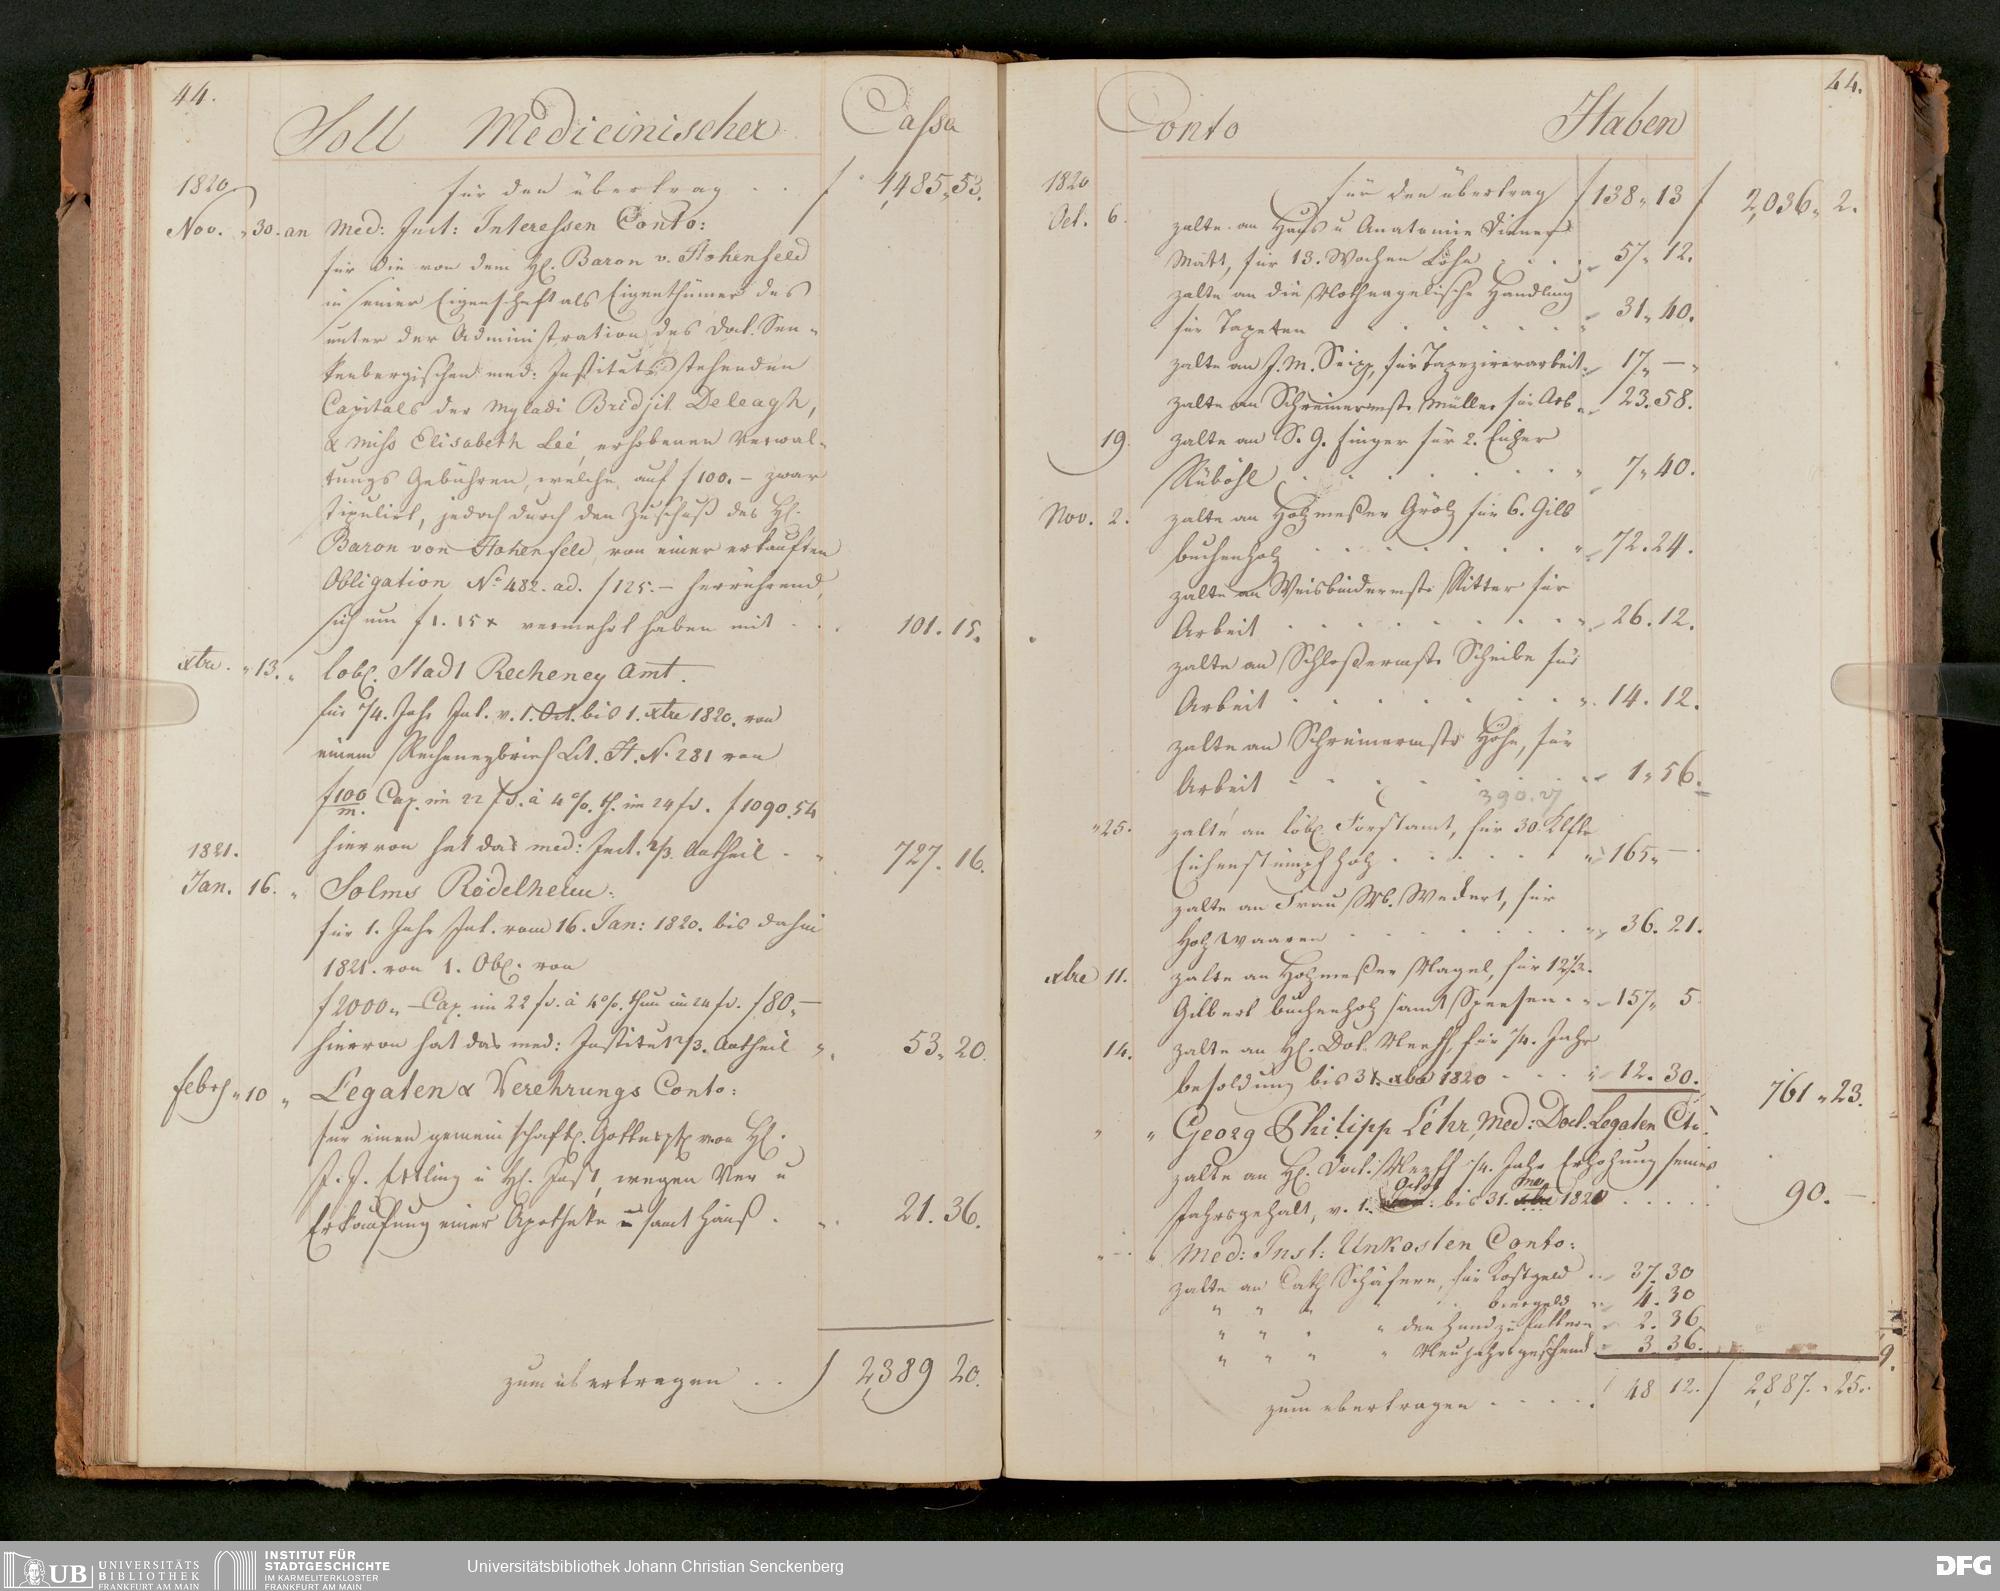 44.
Soll Medicinischer Cassa
1820 für den übertrag . . f 1,485 „ 53.
Nov. „ 30. an Med: Inst: Interessen Conto:
für die von dem H. Baron v. Hohenfeld
in seiner Eigenschaft als Eigenthümer des
unter der Administration des Doct. Sen-
kenbergischen med: Instituts stehenden
Capitals der Myladi Bridjit Deleagh,
& Miss Elisabeth Leé, erhobenen Verwal-
tungs Gebühren, welche auf f 100. – zwar
stipulirt, jedoch durch den Zuschuß des H.
Baron von Hohenfeld, von einer erkauften
Obligation No 482. ad. f 125. – herrührend,
sich um f 1. 15 x vermehrt haben mit . . . 101. 15.
xbre. „ 13. „ lobl. Stadt Recheney Amt.
für 1/4. Jahr Int. v. 1. Oct. bis 1. xbre 1820. von
einem Recheneybrief Lit. H. No. 281 von
f 100/m. Cap. im 22 f d. à 4 %. th. im 24 f d. f 1090. 54
hiervon hat das med: Inst. 2/3. Antheil . „ 727. 16.
1821.
Jan. 16. „ Solms Rödelheim:
für 1. Jahr Int. vom 16. Jan: 1820. bis dahin
1821. von 1. Obl. von
f 2000 „ – Cap. im 22 f d. à 4 %. thun im 24 f d. f 80 „ –
hiervon hat das med: Institut 2/3. Antheil „ 53 „ 20.
febr „ 10 „ Legaten & Verehrungs Conto:
für einen gemeinschaftl. Gottespf. von H.
J. J. Ettling u H. Just, wegen Ver u
Erkaufung einer Apotheke samt Hauß . „ . 21. 36.
zum übertragen . . f 2,389 20.
44.
Conto Haben
1820 für den übertrag f 138 „ 13 f 2,036 „ 2.
Oct. 6. zalte an Haus u Anatomie Diener
Mätt, für 13. Wochen Lohn . . . 57 „ 12.
zalte an die Nothnagelische Handlung
für Tapeten . . . . . . 31 „ 40.
zalte an J. M. Seipp, für Tapezirerarbeit 17 „ –
zalte an Schreinermstr Müller für Arb 23. 58.
19. zalte an S. G. Finger für 2. Eicher
Rüböhl . . . . . . . 7 „ 40.
Nov. 2. zalte an Holzmeßer Grölz für 6. Gilb
buchenholz . . . . . . . 72. 24.
zalte an Weisbindermstr Ritter für
Arbeit . . . . . . . 26. 12.
zalte an Schloßermstr Scheibe für
Arbeit . . . . . . . 14. 12.
zalte an Schreinermstr Höhn, für
Arbeit . . . . . . 1 „ 56.
390. 27
„ 25. zalte an löbl. Forstamt, für 30. Klftr
Eichenstümpfholz . . . . . 165 „ –
zalte an Frau Wb. Weckert, für
Holzwaaren . . . . . . 36. 21.
xbre 11. zalte an Holzmeßer Nagel, für 12 1/2.
Gilbert buchenholz samt Speesen . „ 157 „ 5
14. zalte an H. Doct. Neeff, für 1/4. Jahr
besoldung bis 31. xbre 1820 . . . „ 12. 30. 761 „ 23.
„ „ Georg Philipp Lehr, Med: Doct. Legaten Cto:
zalte an H. Doct: Neeff 1/4. Jahr Erhöhung seines
Jahrsgehalt, v. 1. Octob: bis 31. 1820 . . . . . 90. –
„ – „ Med: Inst: Unkosten Conto:
zalte an Cath Schäfern, für Kostgeld . . 37. 30
„ „ „ „ biergeld „ 4. 30
„ „ „ „ den Hund zu futtern 2. 36
„ „ „ „ Neujahrsgeschenk 3. 36.
zum übertragen . . . . . f 48 12. f 2,887. „ 25.
9.
UB UNIVERSITÄTS BIBLIOTHEK FRANKFURT AM MAIN
INSTITUT FÜR STADTGESCHICHTE IM KARMELITERKLOSTER FRANKFURT AM MAIN
Universitätsbibliothek Johann Christian Senckenberg
DFG